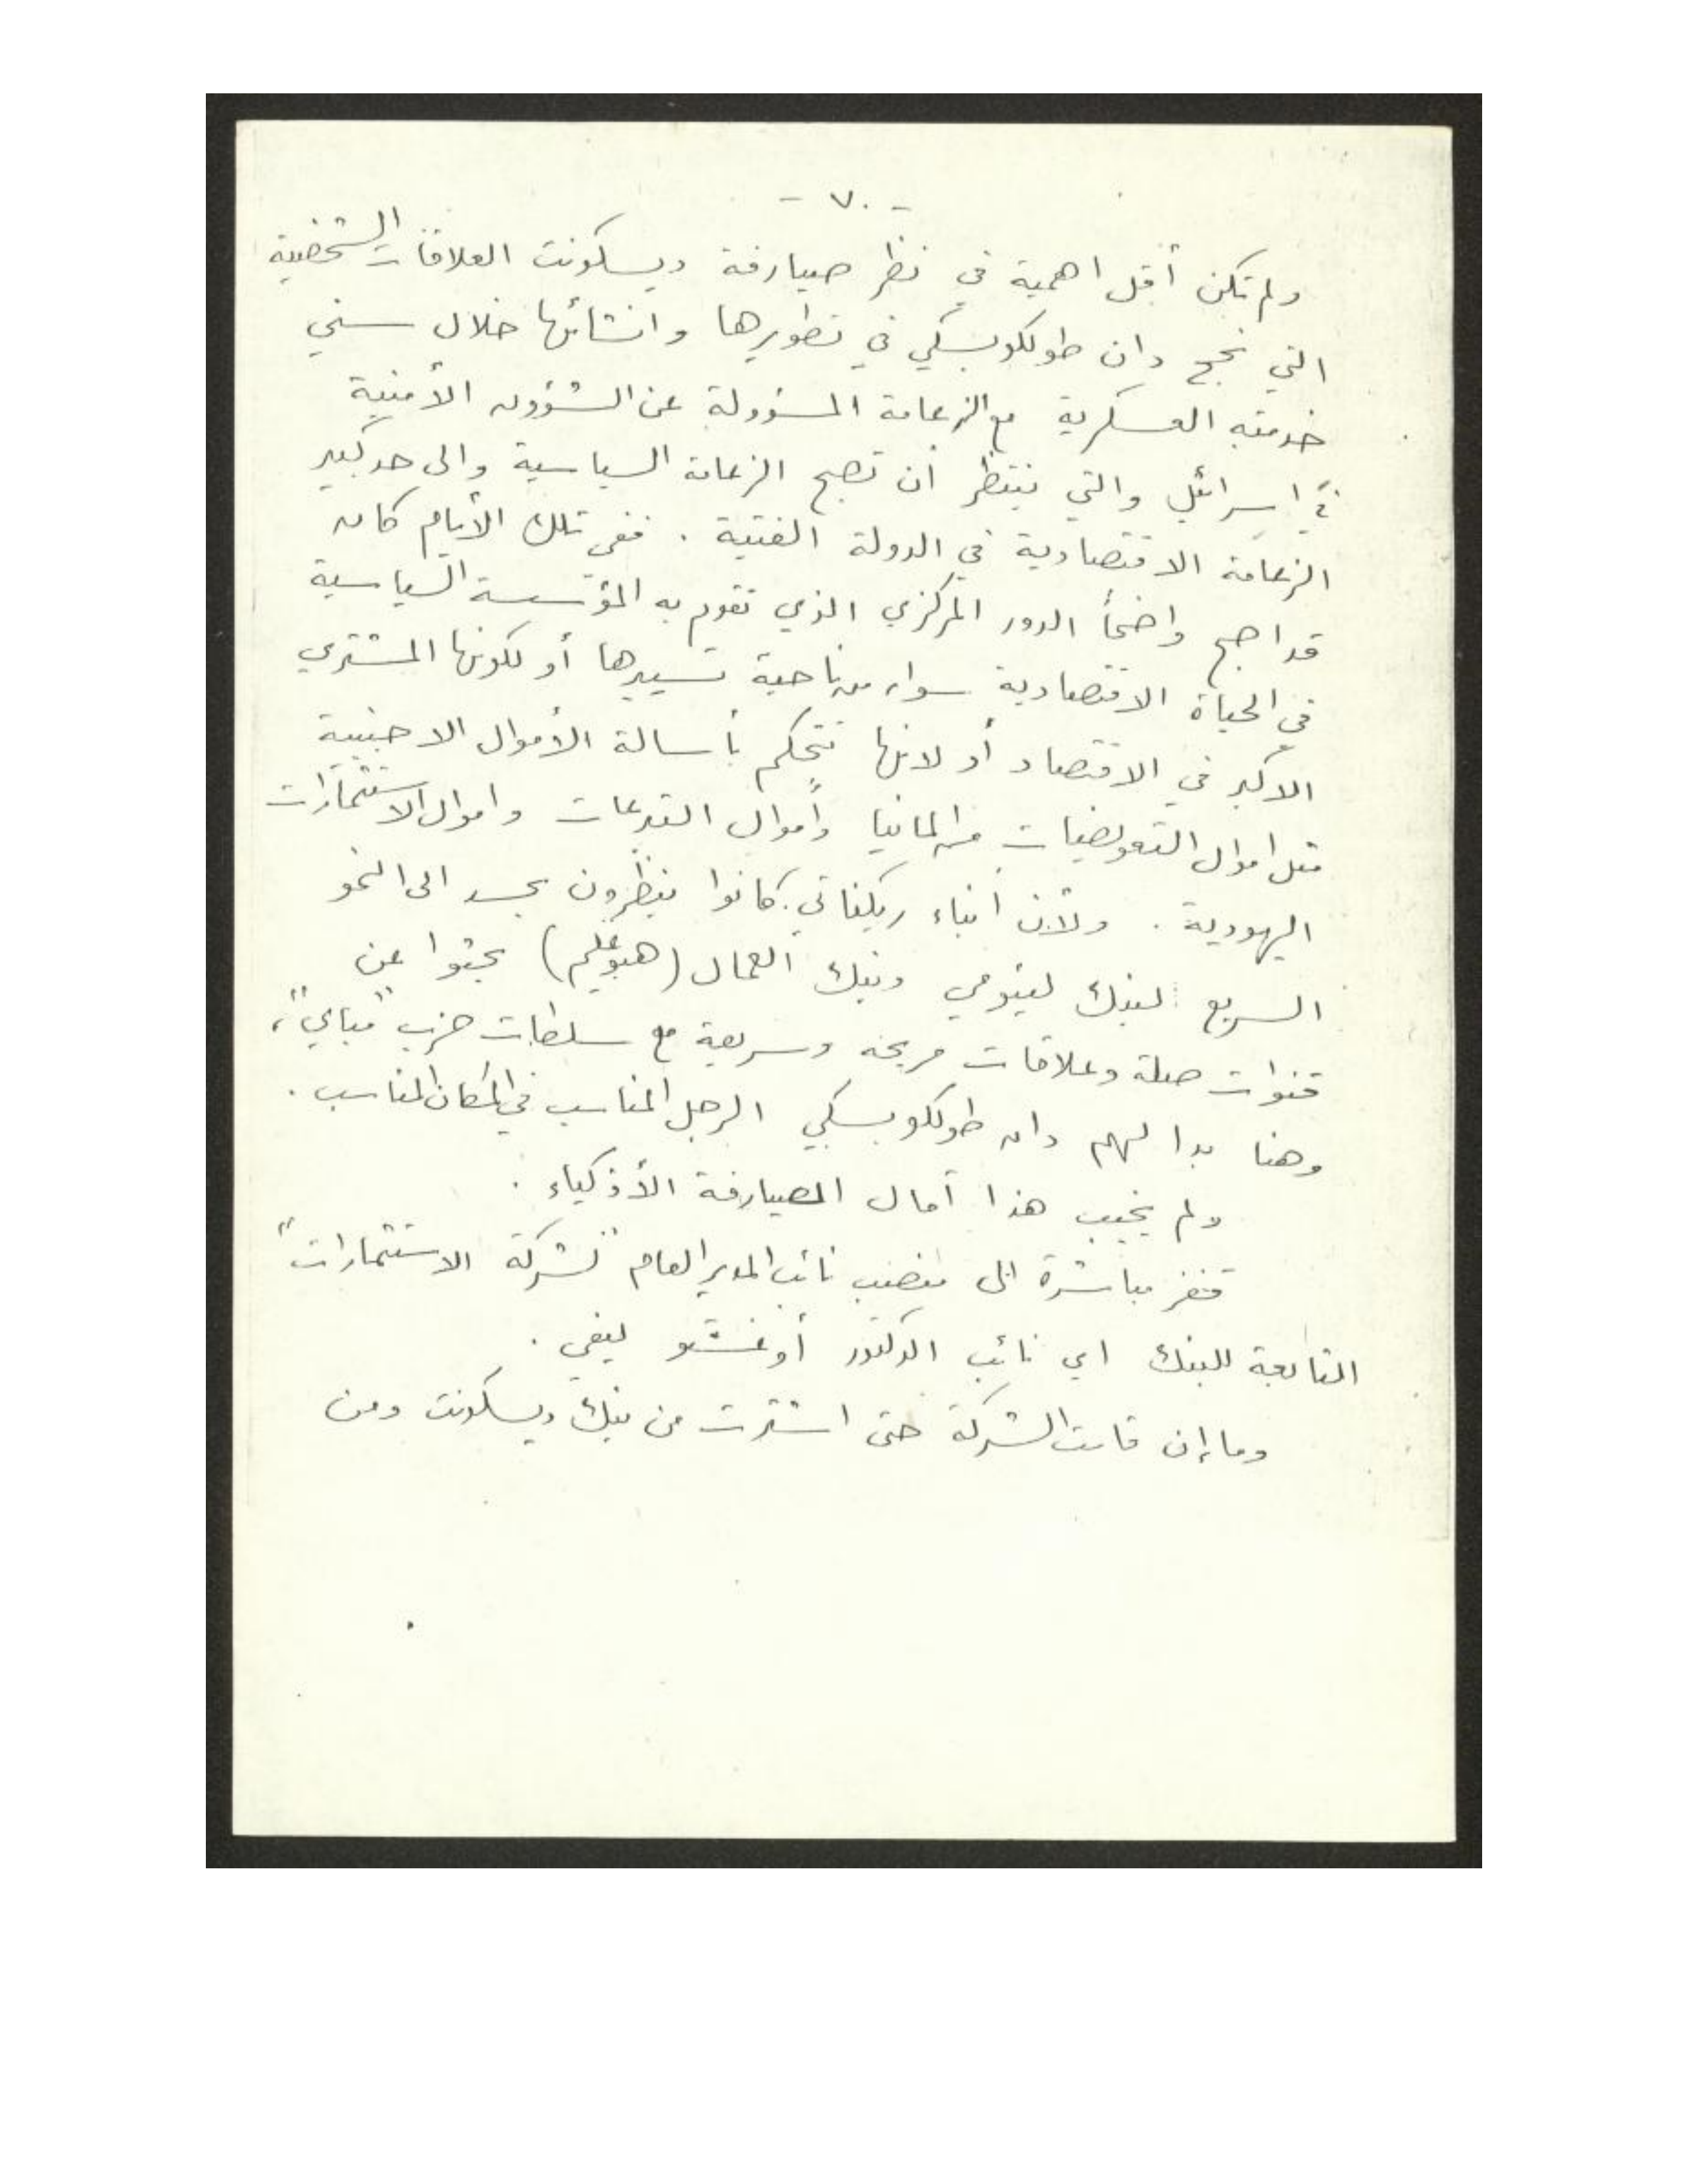 - ٧٠ -
ولم تكن أقل اهمية في نظر صيارفة ديسكونت العلاقات الشخصية
التي نجح دان طولكوبسكي في تطويرها وانشائها خلال سني
خدمته العسكرية مع الزعامة المسؤولة عن الشؤون الأمنية
في اسرائيل والتي ننتظر أن تصبح الزعامة السياسية والى حد كبير
الزعامة الاقتصادية في الدولة الفتية . ففي تلك الأيام كان
قد اصبح واضحاً الدور المركزي الذي تقوم به المؤسسة السياسية
في الحياة الاقتصادية سواء من ناحية تسييرها أو لكونها المشتري
الاكبر في الاقتصاد أو لانها تتحكم بأسالة الأموال الاجنبية
مثل اموال التعويضيات من المانيا وأموال التبرعات واموال الاستثمارات
اليهودية . ولأن أبناء ريكناتي كانوا ينظرون بحسد الى النمو
السريع لبنك ليئومي وبنك العمال (هبوعليم) بحثوا عن
قنوات صلة وعلاقات مريحة وسريعة مع سلطات حزب "مباي"،
وهنا بدا لهم دان طولكوبسكي الرجل المناسب في المكان المناسب .
ولم يخيب هذا آمال الصيارفة الأذكياء .
قفز مباشرة الى منصب نائب المدير العام "لشركة الاستثمارات"
التابعة للبنك اي نائب الدكتور أوغشو ليفي .
وما إن قامت الشركة حتى اشترت من بنك ديسكونت ومن